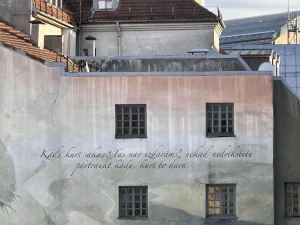 Kāds, kurš sakņo "Tas nav izdarāms", nekad nedrīkstētu
pārtraukt kādu, kurš to dara.